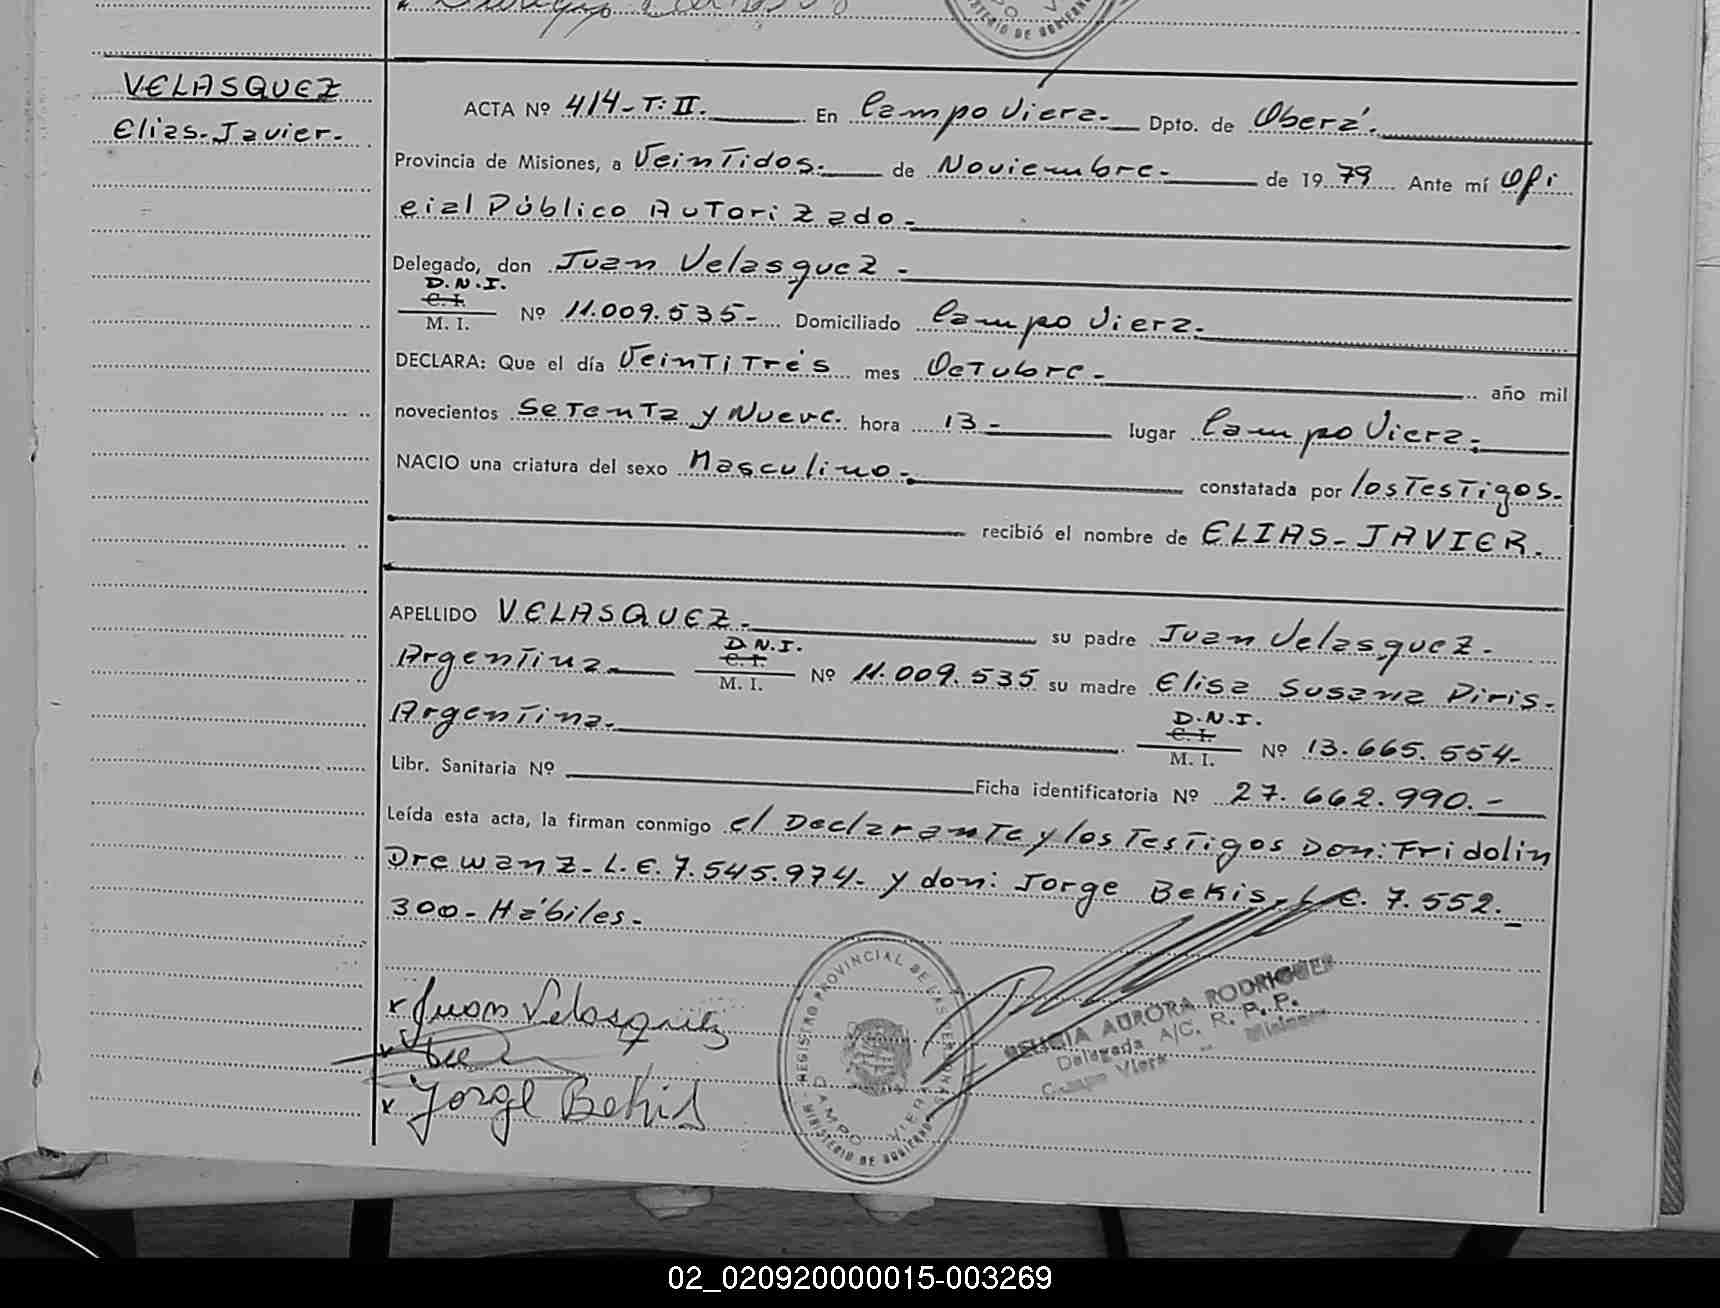 VELASQUEZ
Elias-Javier-
ACTA Nº 414-T:II. En Campo Viera- Dpto. de Oberá.
Provincia de Misiones, a Veintidos. de Noviembre- de 1979 Ante mí Ofi
cial Público Autorizado-
Delegado, don Juan Velasquez-
D.N.I.
C. I.
M. I.
Nº 11.009.535- Domiciliado Campo Viera-
DECLARA: Que el día Veintitrés mes Octubre- año mil
novecientos Setenta y Nueve. hora 13- lugar Campo Viera-
NACIO una criatura del sexo Masculino- constatada por los Testigos.
recibió el nombre de ELIAS-JAVIER.
APELLIDO VELASQUEZ- su padre Juan Velasquez-
Argentina- D.N.I. C. I. M. I. Nº 11.009.535 su madre Elisa Susana Piris-
Argentina. D.N.I. C. I. M. I. Nº 13.665.554-
Libr. Sanitaria Nº Ficha identificatoria Nº 27.662.990.-
Leída esta acta, la firman conmigo el Declarante y los Testigos Don: Fridolin
Drewanz- L.E. 7.545.974- y don: Jorge Bekis- L.E. 7.552.
300- Hábiles-
x Juan Velasquez
x
x Jorge Bekis
REGISTRO PROVINCIAL DE LAS PERSONAS
CAMPO VIERA
MINISTERIO DE GOBIERNO
AURORA RODRIGUES
Delegada A/C. R. P. P.
Campo Viera - Misiones
02_020920000015-003269